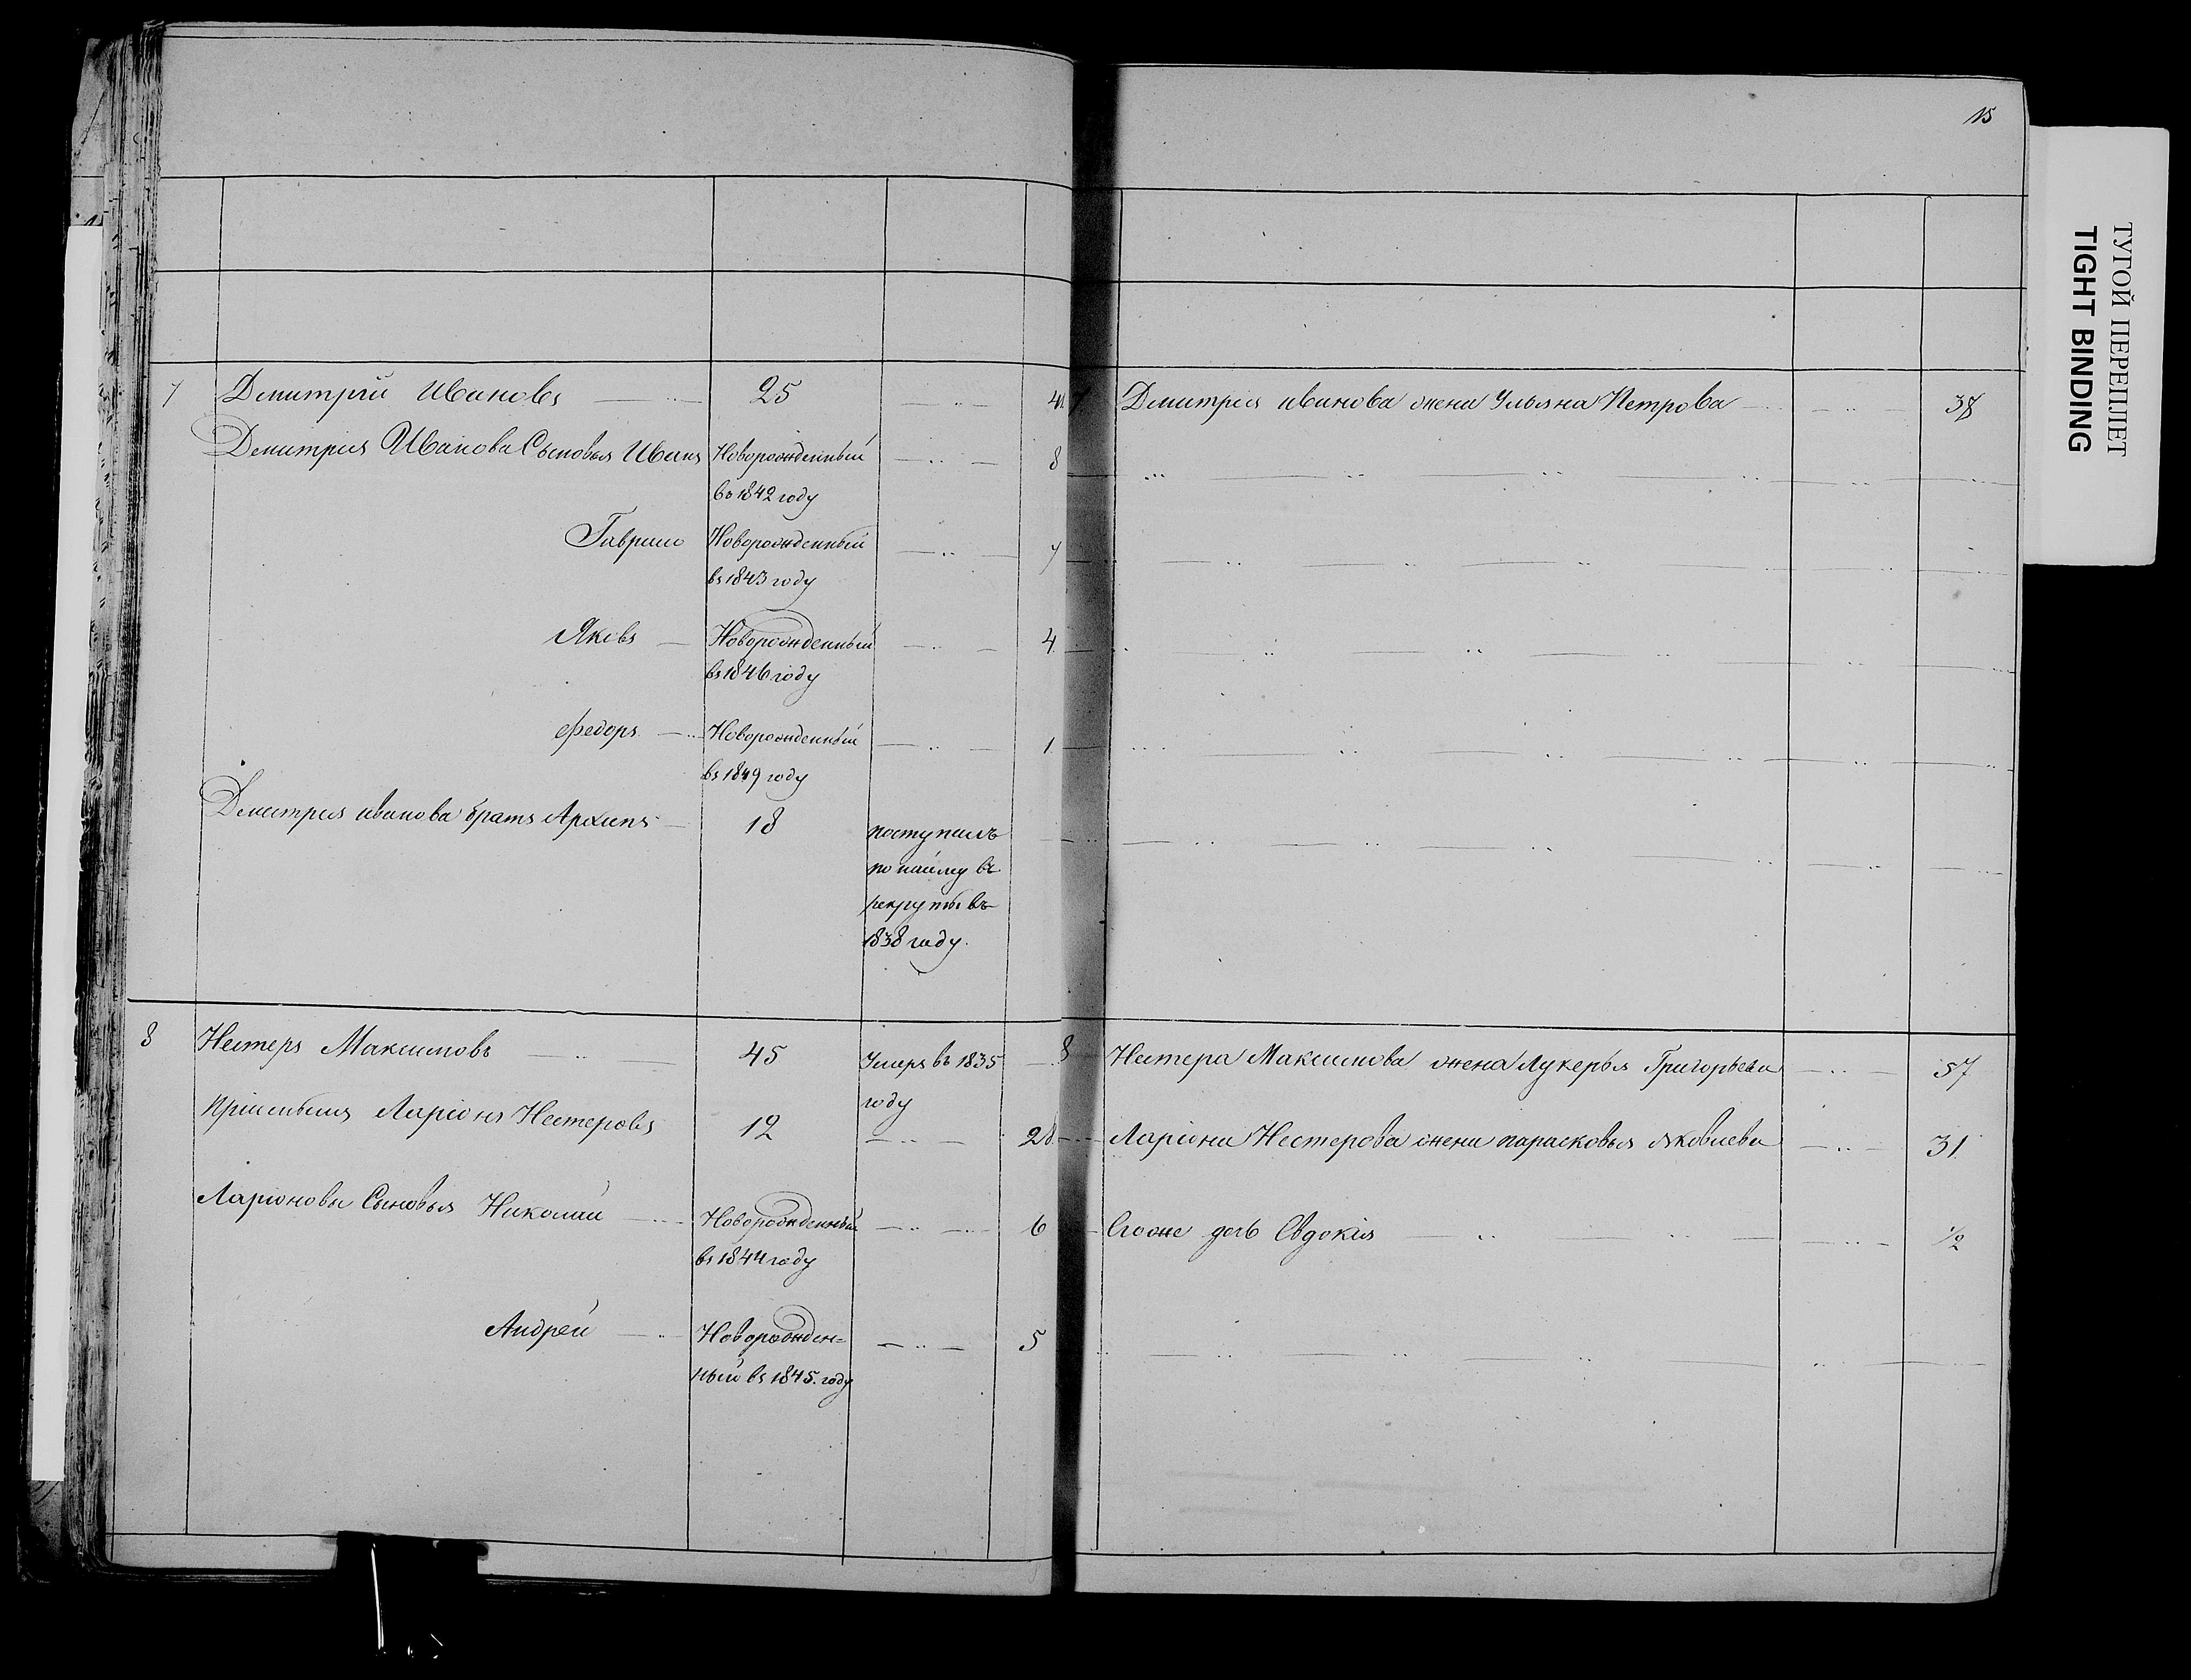 15
7 Дмитрій Ивановъ 25 41
Дмитрія Иванова Сыновья Иванъ Новорожденный 8
въ 1842 году
Гаврило Новорожденный 7
въ 1843 году
Яковъ Новорожденный 4
въ 1846 году
Федоръ Новорожденный 1
въ 1849 году
Дмитрія иванова братъ Архипъ 18 поступилъ
по найму въ
рекруты въ
1838 году.
8 Нестеръ Максимовъ 45 Умеръ въ 1835
году
Пріемышъ Ларіонъ Нестеровъ 12 28
Ларіоновы Сыновья Николай Новорожденный 6
въ 1844 году
Андрей Новорожден=
ный въ 1845. году 5
7 Дмитрія иванова жена Ульяна Петрова 37
8 Нестера Максимова жена Лукерья Григорьева 57
Ларіона Нестерова жена парасковья яковлева 31
Егоже дочь Евдокія 1/2
ТУГОЙ ПЕРЕПЛЕТ
TIGHT BINDING